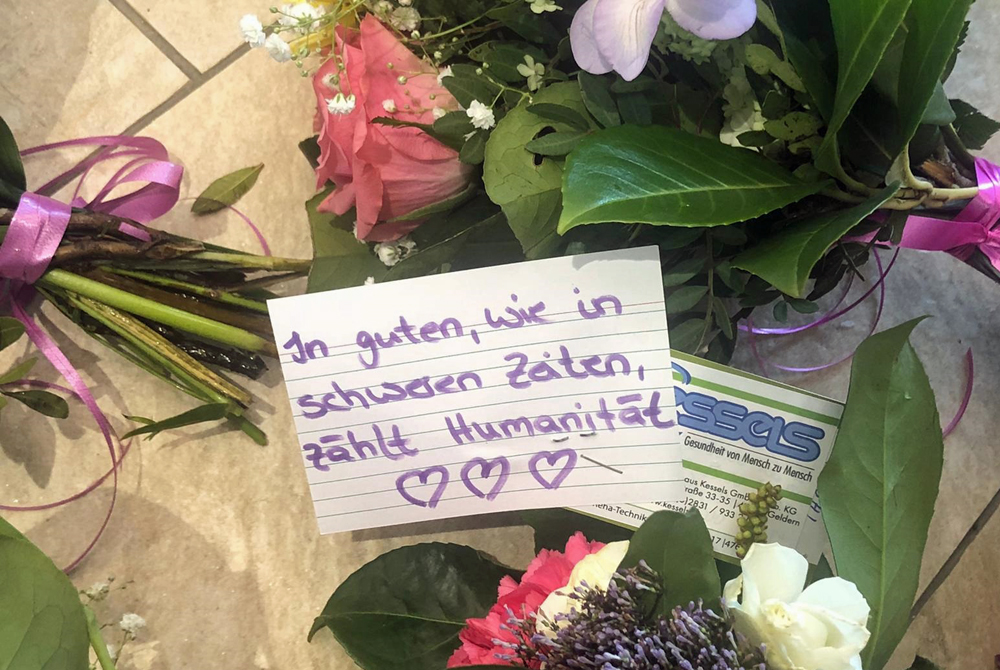 In guten, wie in
schweren Zeiten,
zählt Humanität
essels
Gesundheit von Mensch zu Mensch
aus Kessels Gm
raße 33-35
KG
)2831 / 933
Geldern
.kessel
ena-Technik
17|47